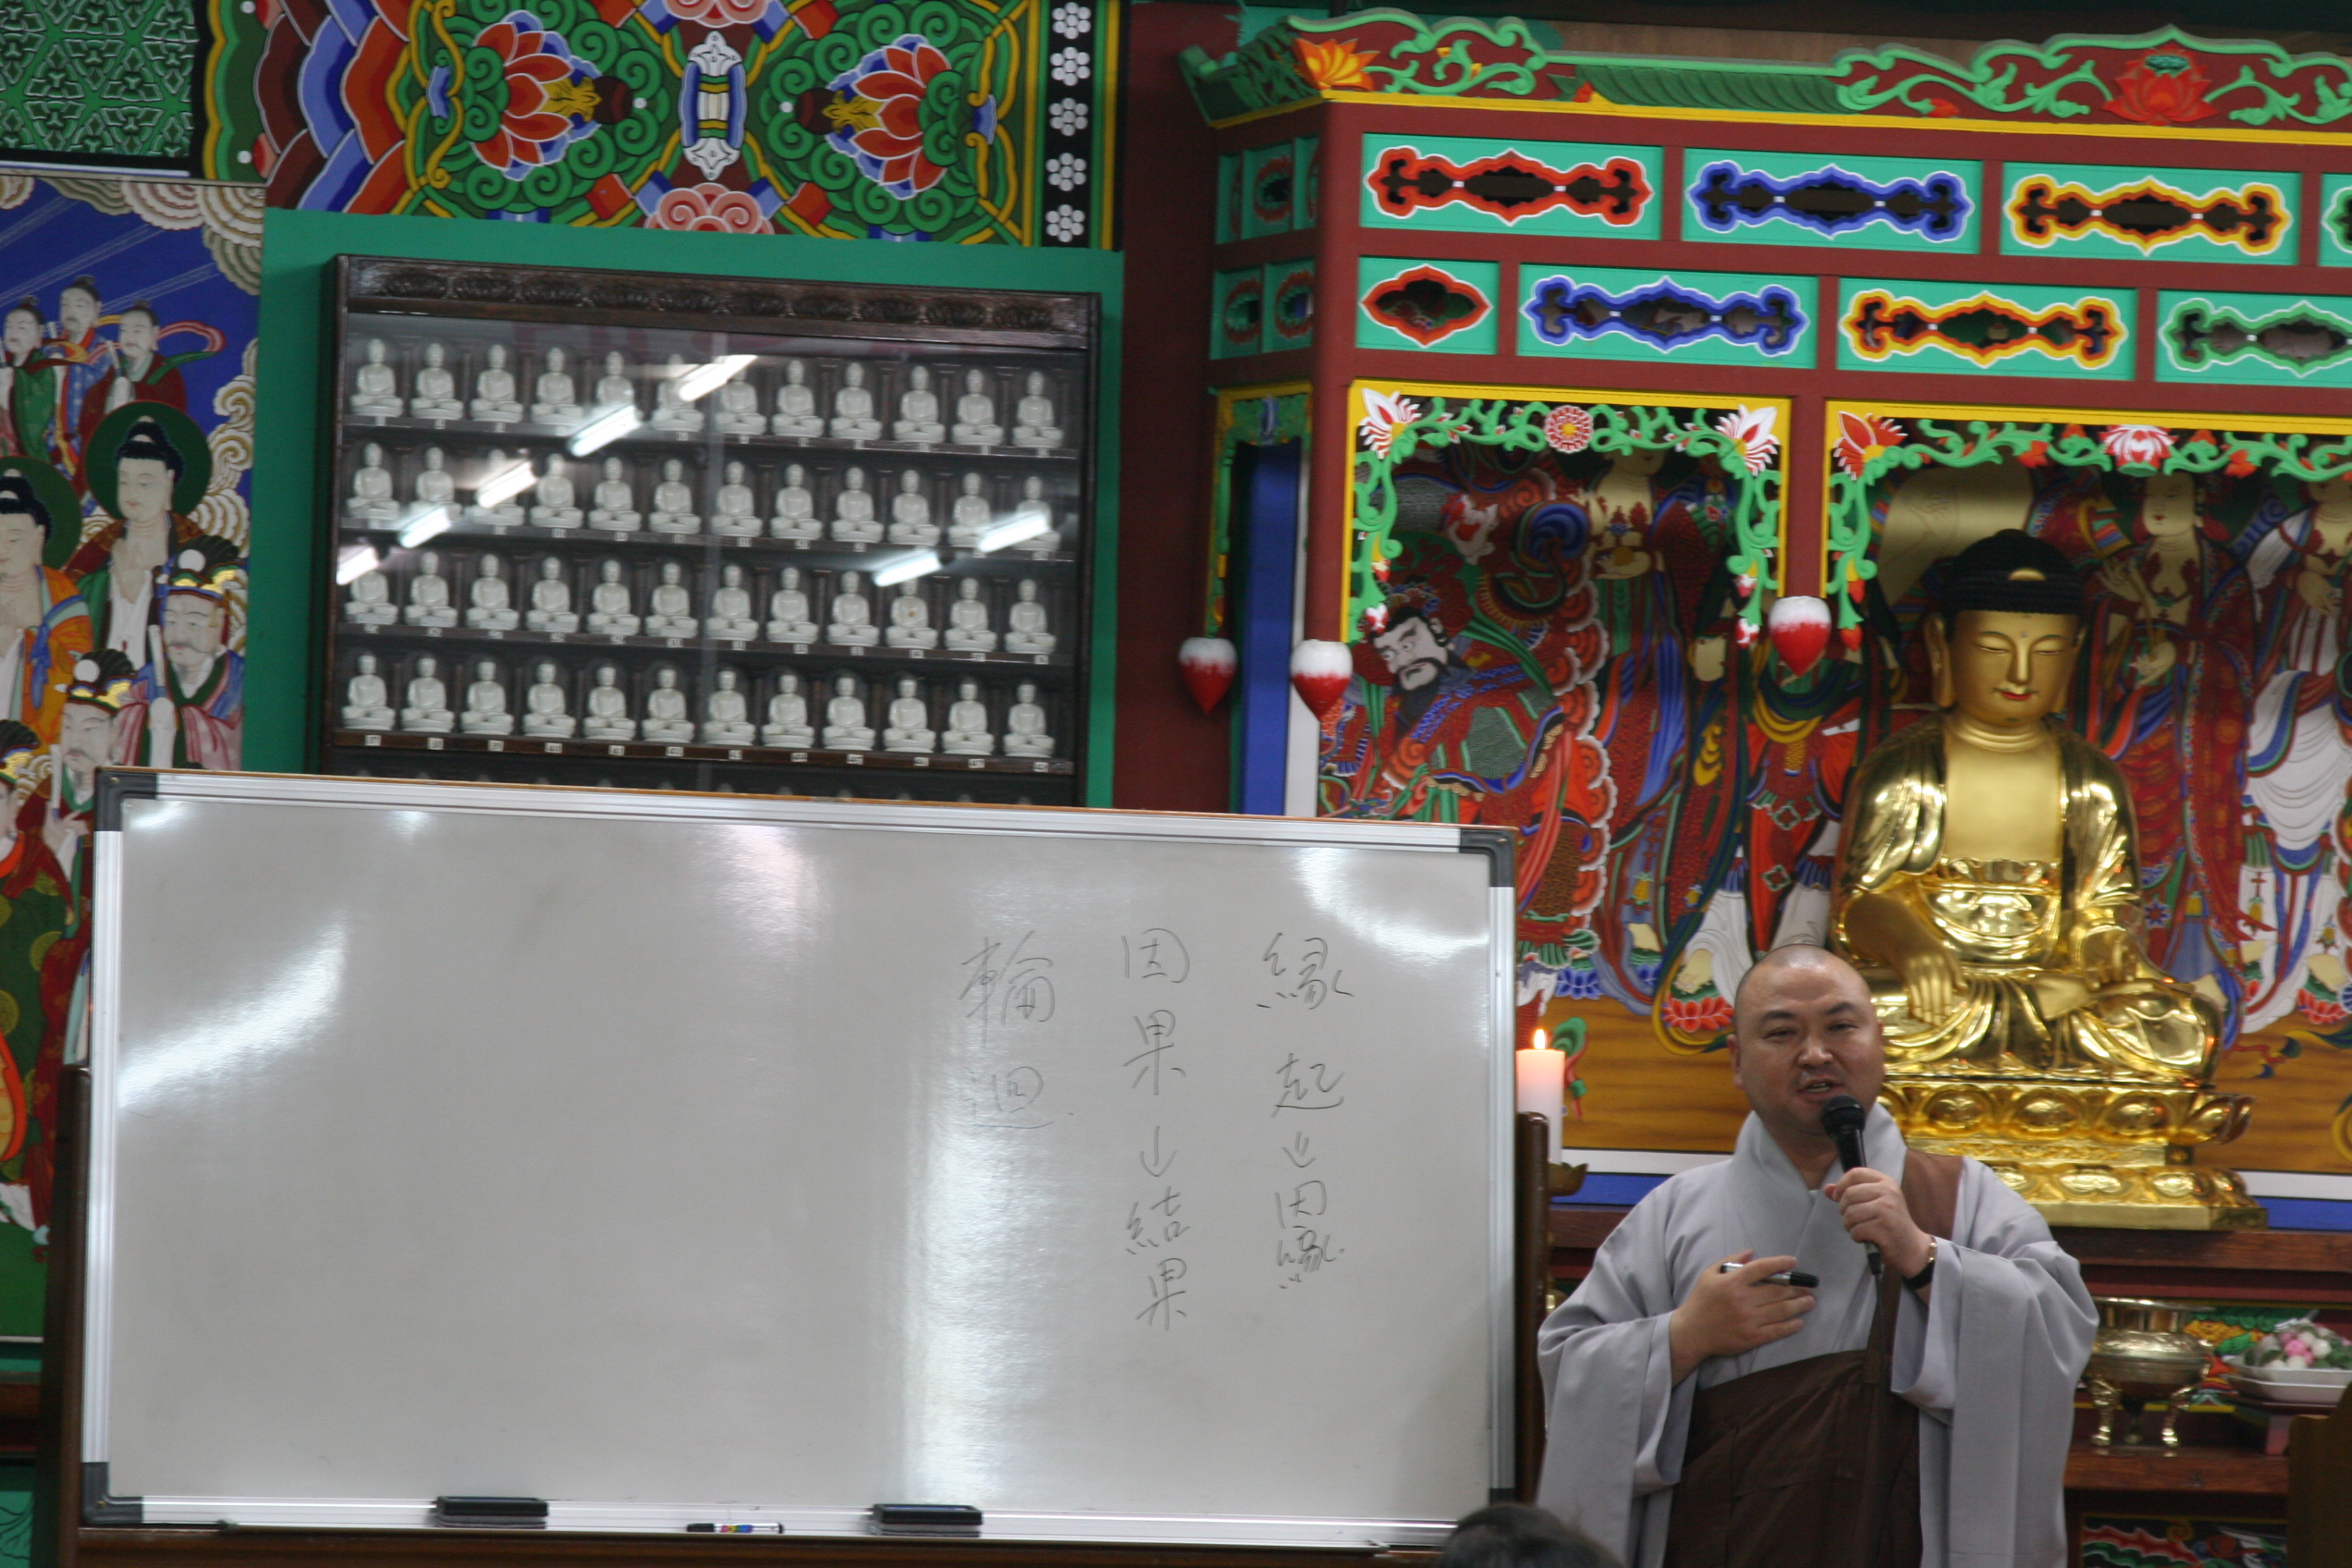 縁起↓因縁
因果↓結果
輪廻